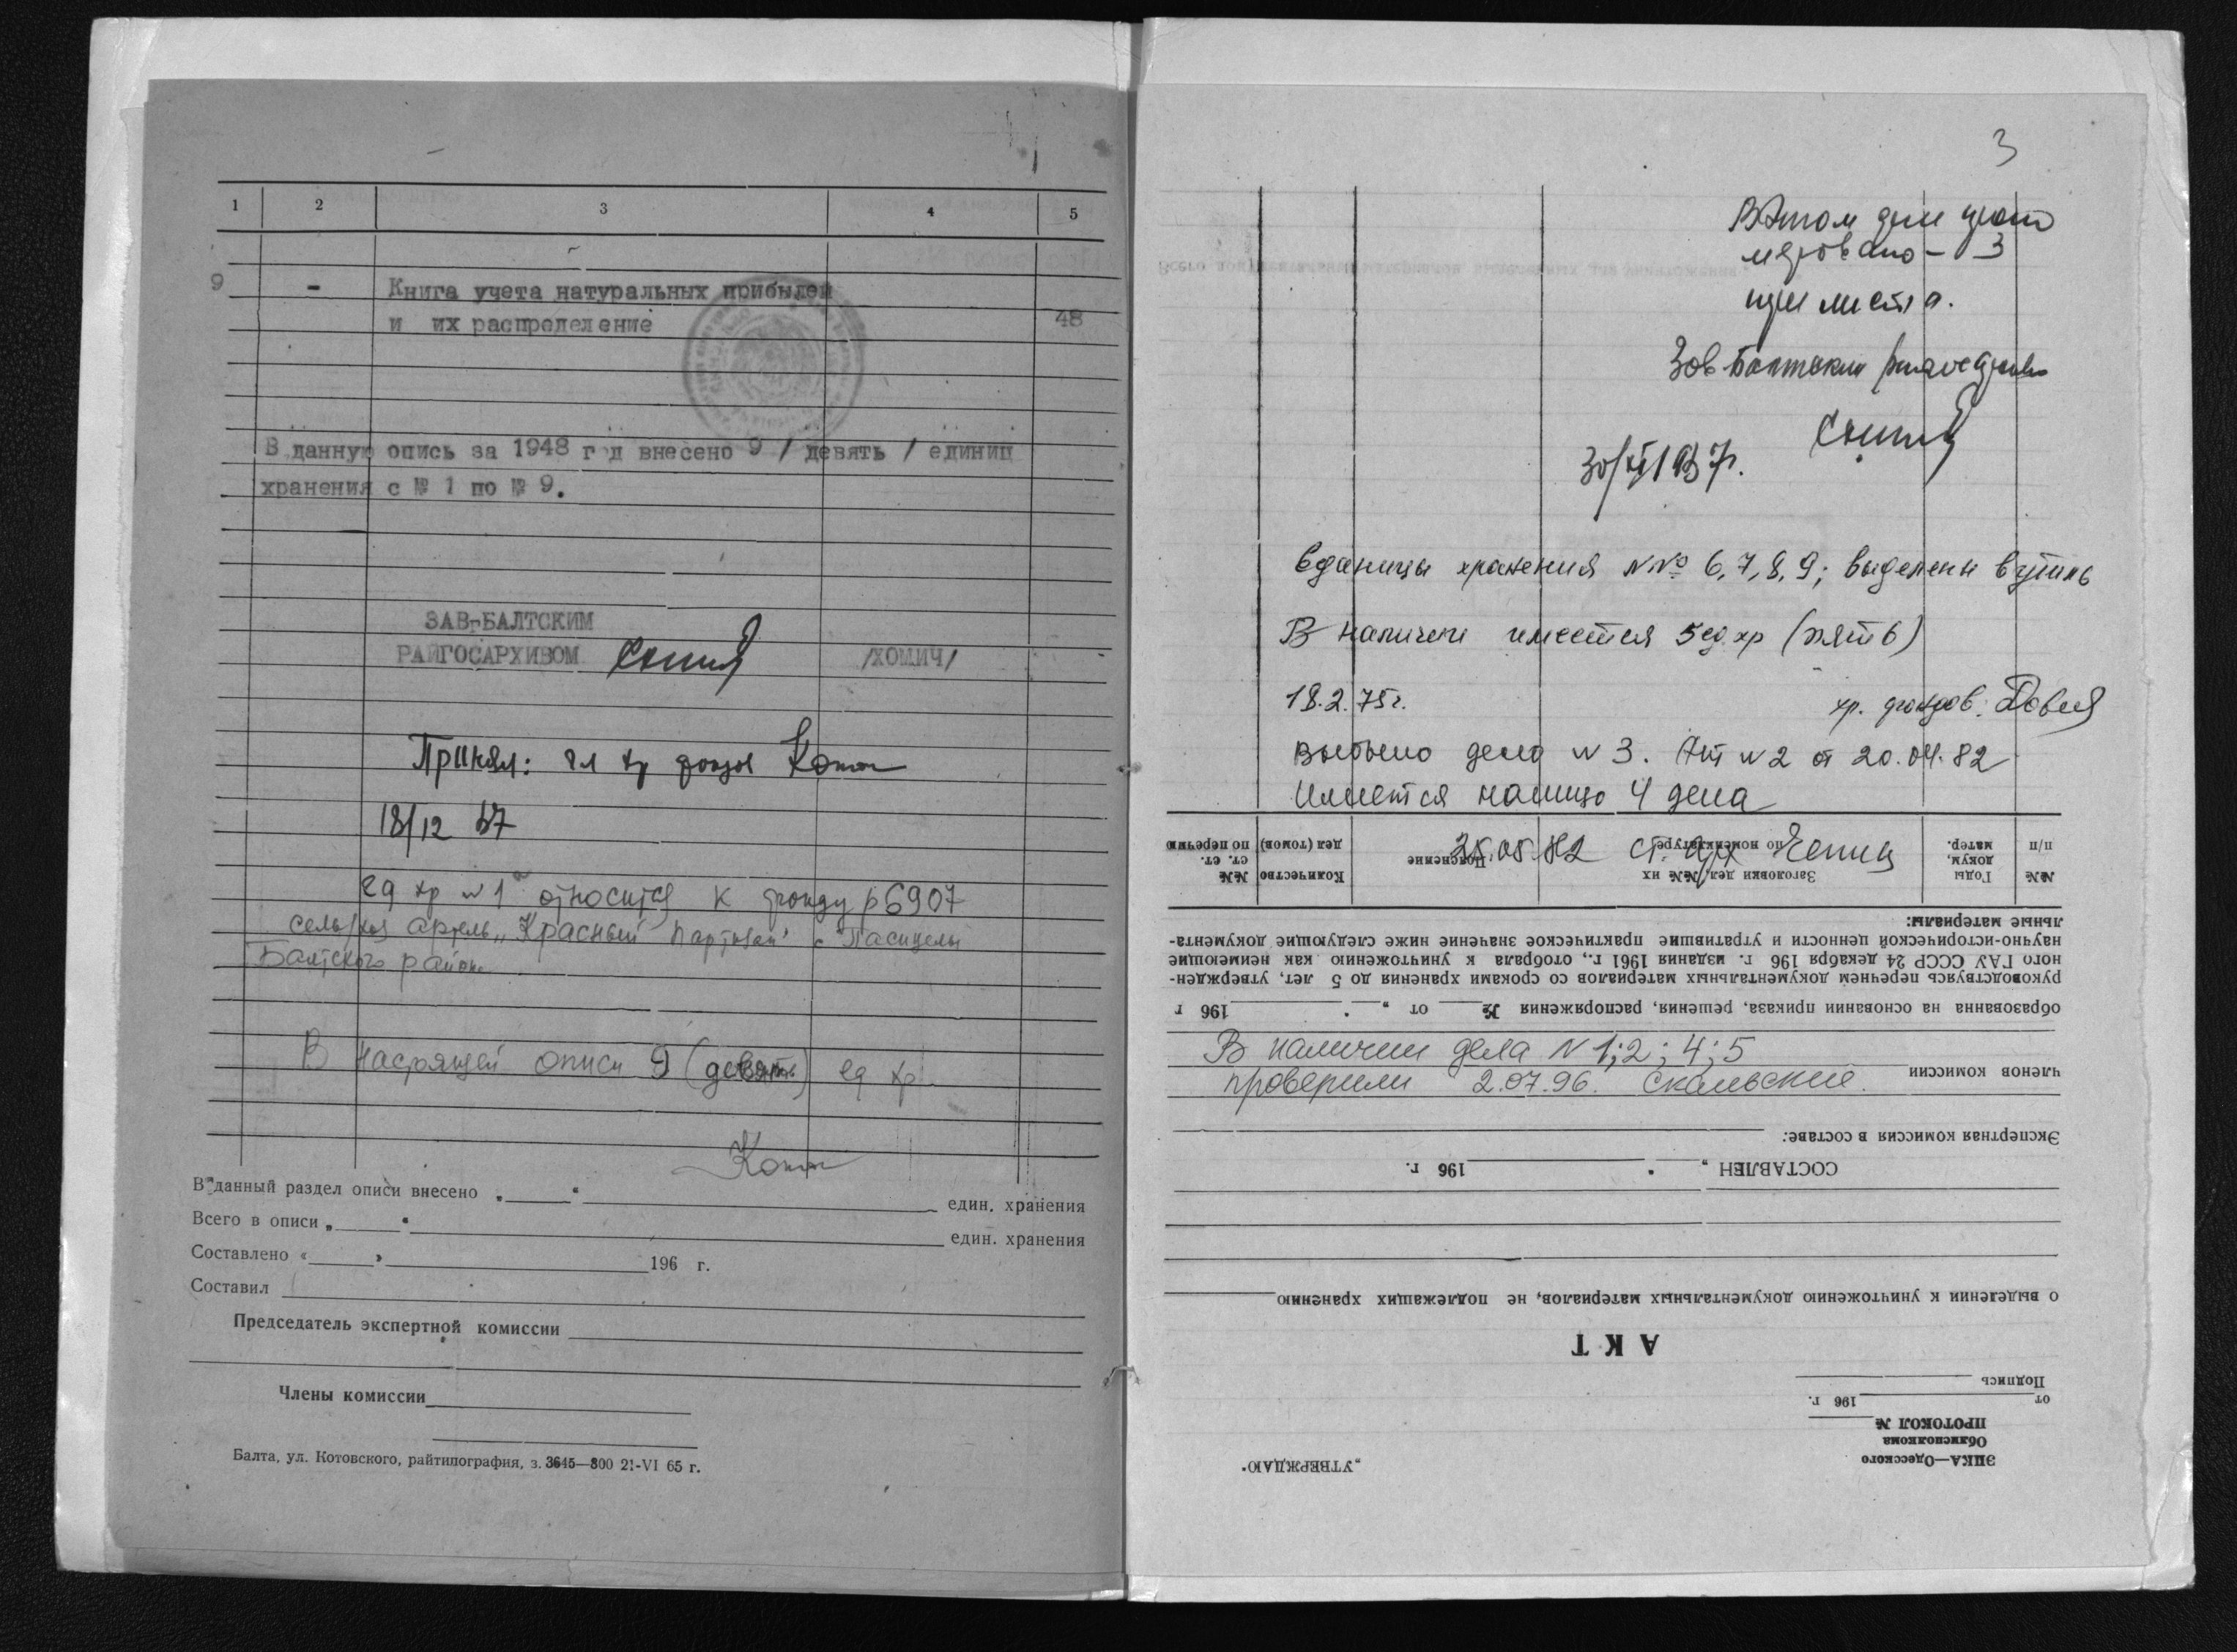 1 2 3 4 5
9 - Книга учета натуральных прибылей
и их распределение 48
В данную опись за 1948 г д внесено 9 / девять / единиц
хранения с № 1 по № 9.
ЗАВ-БАЛТСКИМ
РАЙГОСАРХИВОМ /ХОМИЧ/
Принял: гл хр фондов
18/12 67
ед хр № 1 относится к фонду р 6907
сель/хоз артель „Красный партизан" с Пасицелы
Балтского района
В настоящей описи 9 (девять) ед хр
В данный раздел описи внесено „ “ един. хранения
Всего в описи „ “ един. хранения
Составлено « » 196 г.
Составил
Председатель экспертной комиссии
Члены комиссии
Балта, ул. Котовского, райтипография, з. 3645—800 21-VI 65 г.
3
В этом деле прону
меровано - 3
три листа.
Зав Балтским
Единицы хранения №№ 6, 7, 8, 9; выделены в утиль
В наличии имеется 5 ед. хр (пять)
18.2.75г. хр. фондов.
Выбыло дело № 3. Акт № 2 от 20.04.82
Имеется налицо 4 дела
25.05.82 ст. арх
В наличии дела N 1; 2; 4; 5
проверили 2.07.96. Скальский.
„УТВЕРЖДАЮ“
ЭПКА—Одесского
Облисполкома
ПРОТОКОЛ №
от 196 г.
Подпись
АКТ
о выделении к уничтожению документальных материалов, не подлежащих хранению
СОСТАВЛЕН „ “ 196 г.
Экспертная комиссия в составе:
членов комиссии
образованна на основании приказа, решения, распоряжения № от „ “ 196 г
руководствуясь перечнем документальных материалов со сроками хранения до 5 лет, утвержден-
ного ГАУ СССР 24 декабря 196 г. издания 1961 г., отобрала к уничтожению как неимеющие
научно-исторической ценности и утратившие практическое значение ниже следующие документа-
льные материалы:
№№ п/п
Годы докум. матер.
Заголовки дел, №№ их по номенклатуре
Пояснение
Количество дел (томов)
№№ ст. ст. по перечню